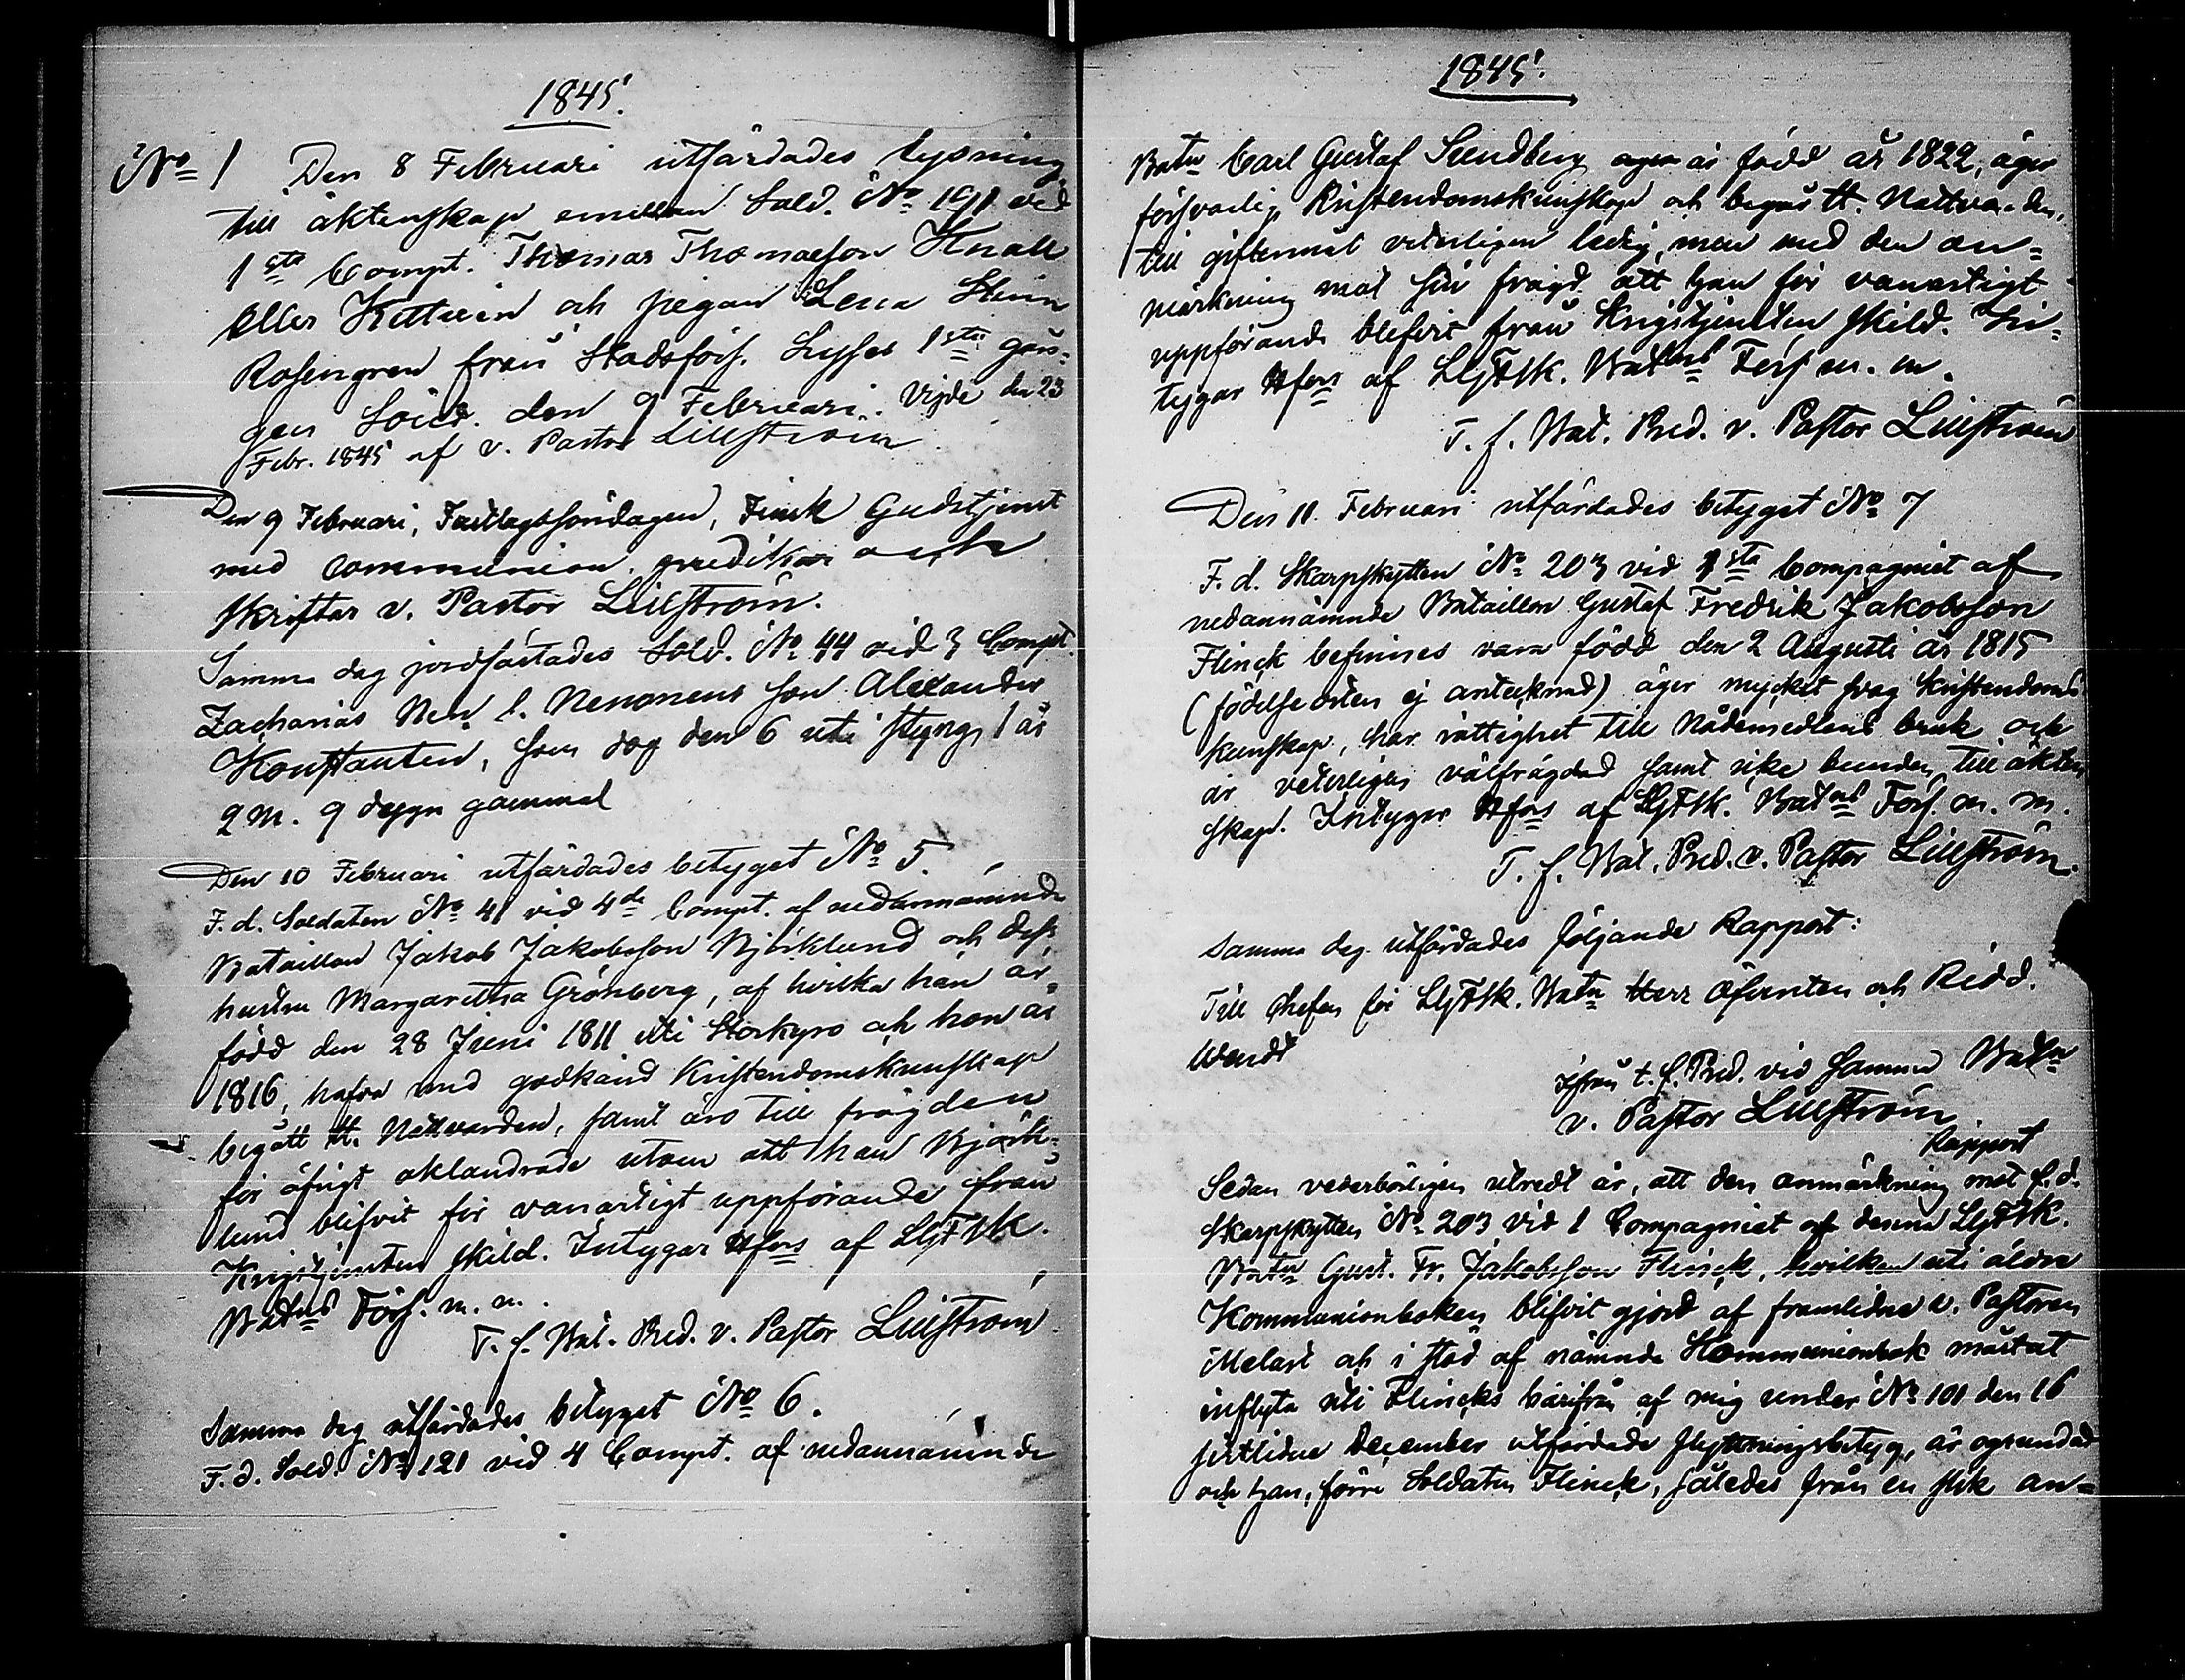 1845.
No 1 Den 8 Februari utfärdades lysning
till äktenskap emellan Sold. No 191 vid
1sta Compt. Thomas Thomasson Knall
eller Kettuin och pigan Lena Stina
Rosengren från Stadsförs. Lystes 1sta gån-
gen Sönd. den 9 Februari. Vigde den 23
Febr. 1845 af v. Pastor Lillström
Den 9 Februari, Fastlagssöndagen, Finsk Gudstjenst
med communion. predikar och
skriftar v. Pastor Lillström.
Samma dag jordfästades Sold. No 44 vid 3 Compt.
Zacharias Nen l. Nenonens son Alexander
Konstantin, som dog den 6 uti styng, 1 år
2 M. 9 dygn gammal
Den 10 Februari utfärdades betyget No 5
F. d. Soldaten No 41 vid 4de Compt. af nedannämnde
Bataillon Jakob Jakobsson Björklund och dess
hustru Margaretha Grönberg, af hvilka han är
född den 28 Juni 1811 uti Storkyro och hon år
1816, hafva med godkänd Kristendomskunskap
begått H. Nattvarden, samt äro till frägden
för öfrigt oklandrade utom att han Björk-
lund blifvit för vanartigt uppförande från
Krigstjensten skild. Intygar Hfors af LlgFSk.
Batns Förs. m. m.
T. f. Bat. Pred. v. Pastor Lillström
Samma dag utfärdades betyget No 6.
F. d. Sold. No 121 vid 4 Compt. af nedannämnde
1845.
Batn Carl Gustaf Sundberg är född år 1822, äger
försvarlig Kristendomskunskap och begås H. Nattvarden,
till giftermål veterligen ledig, men med den an-
märkning mot sin frägd att han för vanartigt
uppförande blifvit från Krigstjensten skild. In-
tygar Hfors af LlgFSk. Batns Förs m. m.
T. f. Bat. Pred. v. Pastor Lillström
Den 11 Februari utfärdades betyget No 7
F. d. Skarpskytten No 203 vid 1sta Compagniet af
nedannämnde Bataillon Gustaf Fredrik Jakobsson
Flinck befinnes vara född den 2 Augusti år 1815
(födelseorten ej antecknad) äger mycket svag Kristendoms
kunskap, har rättighet till Nådemedlens bruk och
är veterligen välfrägdad samt icke bunden till äkten
skap. Intygar Hfors af LlgFSk. Batns Förs. m. m.
T. f. Bat. Pred. v. Pastor Lillström.
Samma dag utfärdades följande Rapport:
Till Chefen för LlgFSk. Batn Herr Öfversten och Ridd.
Wendt
ifrån t. f. Pred. vid samma Batn
v. Pastor Lillström
Rapport
Sedan vederbörligen utredt är, att den anmärkning mot f. d.
Skarpskytten No 203 vid 1 Compagniet af denna LlgFSk.
Batn Gust. Fr. Jakobsson Flinck, hvilken uti äldre
Kommunionboken blifvit gjord af framlidne v. Pastoren
Melart och i stöd af nämnda Kommunionbok måstat
inflyta uti Flincks härifrån af mig under No 101 den 16
sistlidne December utfärdade flyttningsbetyg, är ogrundad
och han, förre Soldaten Flinck, således från en slik an-